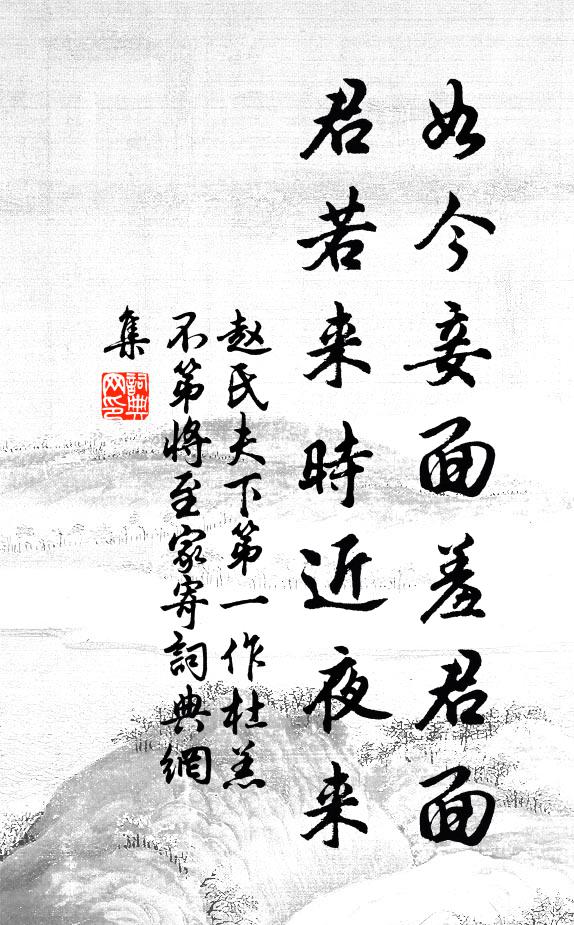 如今妾面羞君面
君若来時近夜来
赵氏夫下第一作杜羔
不第將至家寄詞典網
集
詞典
网印